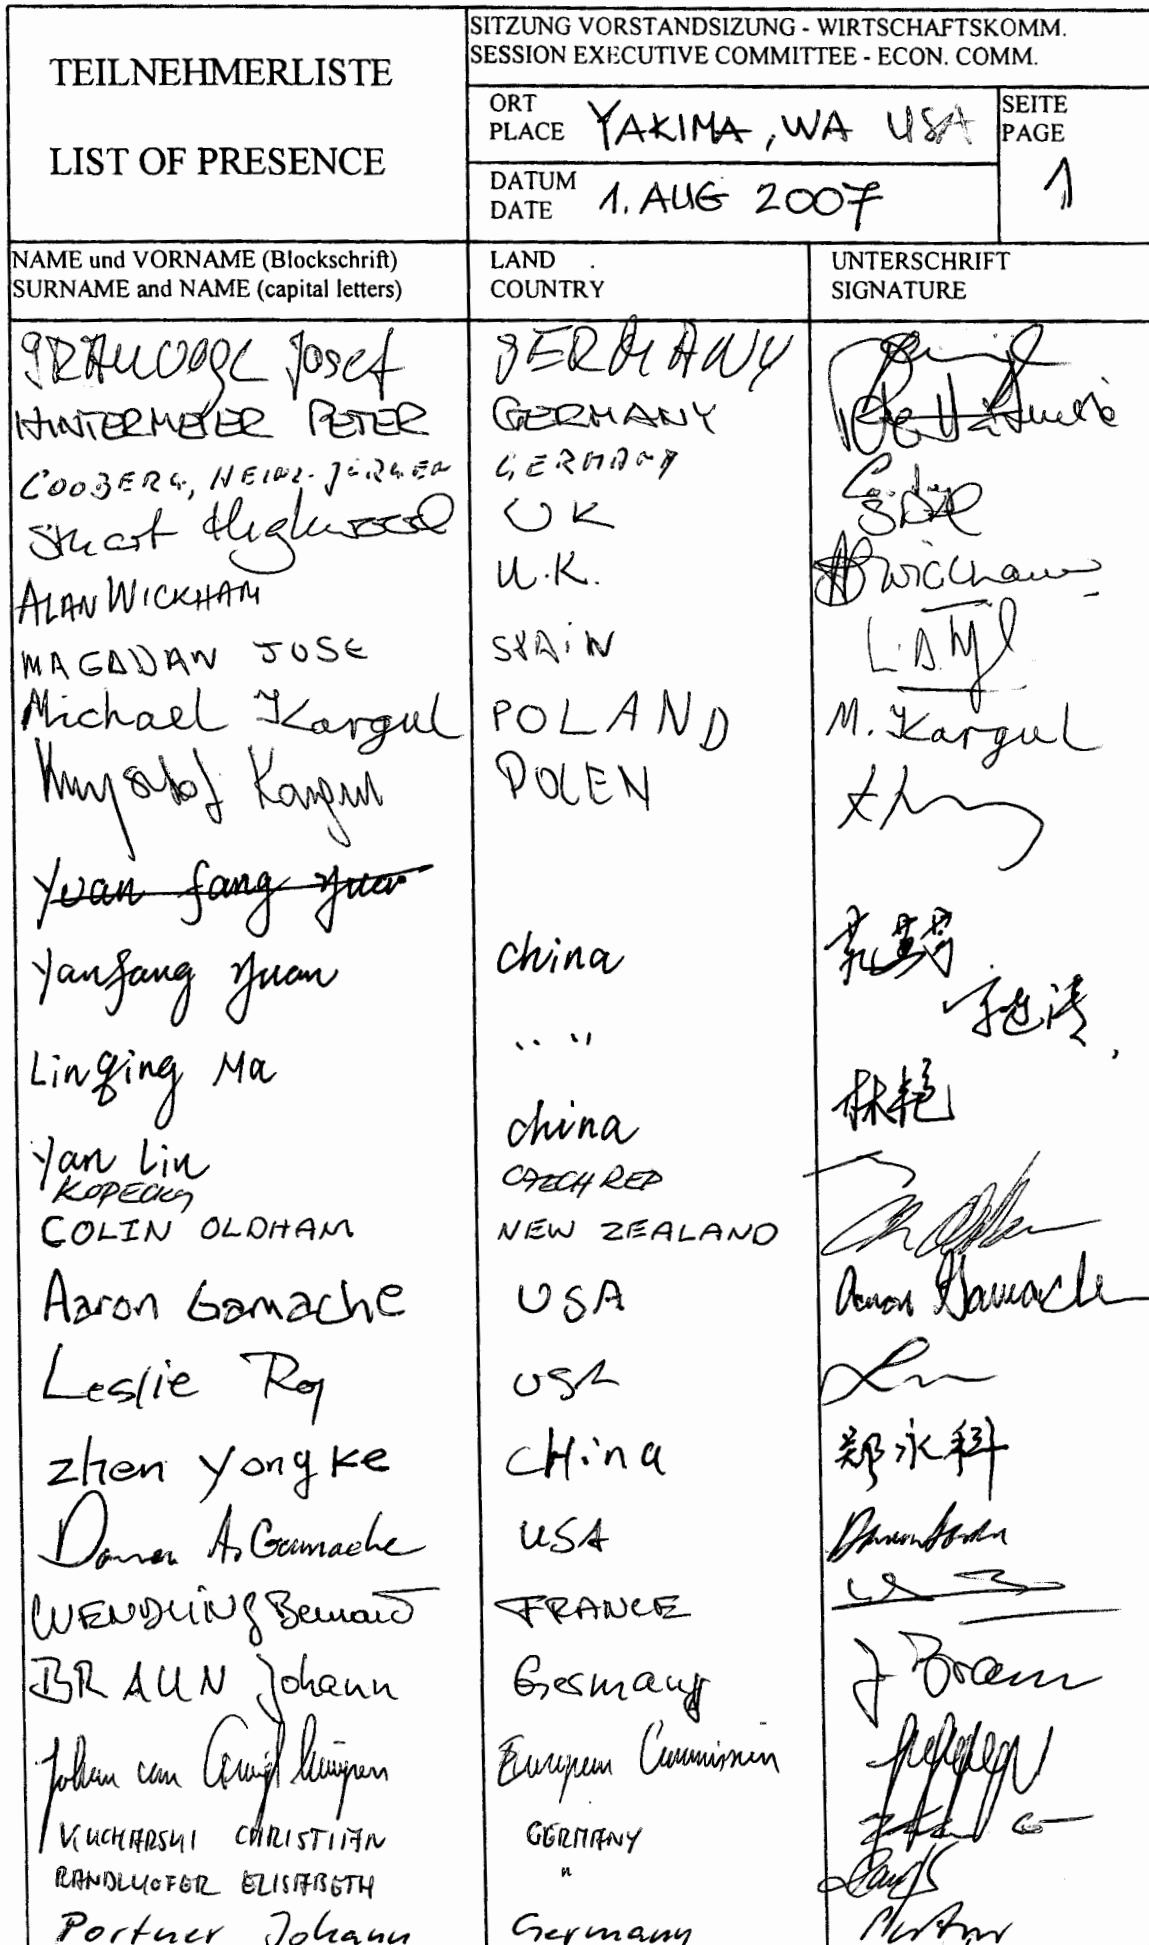 TEILNEHMERLISTE
LIST OF PRESENCE
SITZUNG VORSTANDSIZUNG - WIRTSCHAFTSKOMM.
SESSION EXECUTIVE COMMITTEE - ECON. COMM.
ORT
PLACE YAKIMA, WA USA
SEITE
PAGE
1
DATUM
DATE 1. AUG 2007
NAME und VORNAME (Blockschrift)
SURNAME and NAME (capital letters)
LAND
COUNTRY
UNTERSCHRIFT
SIGNATURE
Josef GERMANY
HINTERMEYER PETER GERMANY
HEINZ-JÜRGEN GERMANY
Stuart Highwood UK
ALAN WICKHAM U.K. Wickham
MAGADAN JOSE SPAIN
Michael Kargul POLAND M. Kargul
Krzysztof Kargul POLEN
Yuan fang Yuan
Yanfang Yuan china
Linqing Ma " "
Yan Lin china 林艳
KOPECKY CZECH REP
COLIN OLDHAM NEW ZEALAND
Aaron Gamache USA Aaron Gamache
Leslie Roy USA
Zhen Yongke CHina 郑永科
Darren A. Gamache USA
WENDLING Bernard FRANCE
BRAUN Johann Germany J Braun
European Commission
KUCHARSKI CHRISTIAN GERMANY
RANDLHOFER ELISABETH "
Portner Johann Germany Portner